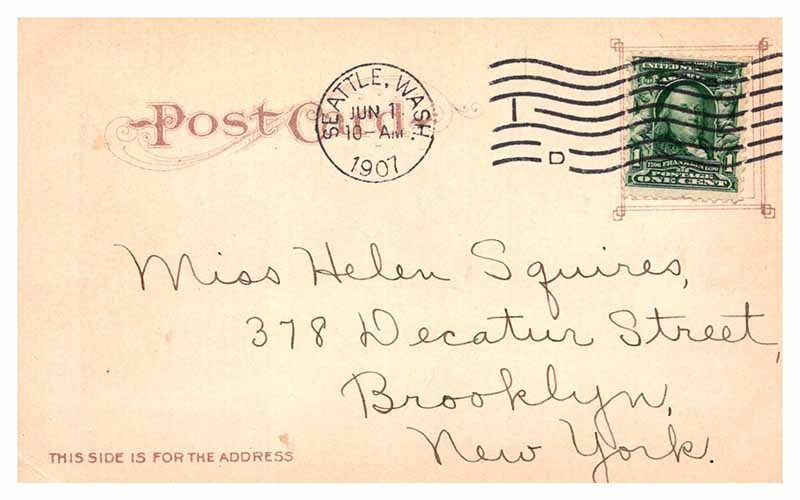 Post Card
SEATTLE, WASH.
JUN 1
10-AM
1907
1
D
UNITED STATES
1706 FRANKLIN 1790
POSTAGE
1 ONE CENT 1
Miss Helen Squires,
378 Decatur Street,
Brooklyn,
New York.
THIS SIDE IS FOR THE ADDRESS